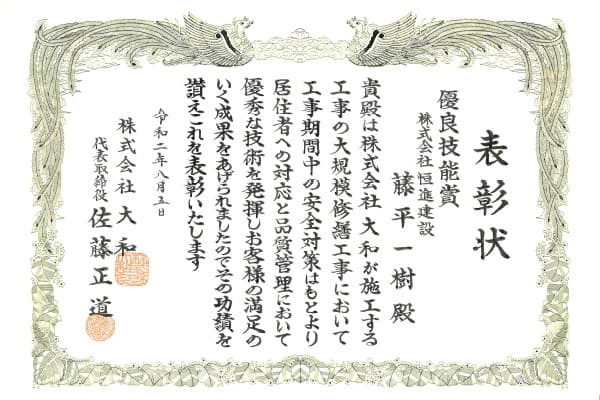 表彰状
優良技能賞
株式会社恒進建設
藤平一樹殿
貴殿は株式会社大和が施工する
工事の大規模修繕工事において
工事期間中の安全対策はもとより
居住者への対応と品質管理において
優秀な技術を発揮しお客様の満足の
いく成果をあげられましたのでその功績を
讃えこれを表彰いたします
令和二年八月五日
株式会社大和
代表取締役 佐藤正道